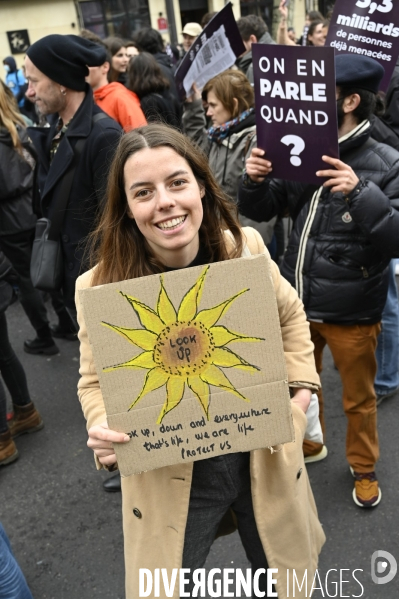 3,5
milliards
de personnes
déjà menacées
ON EN
PARLE
QUAND
?
LOOK
UP
Look up, down and everywhere
that's life, we are life
PROTECT US
DIVERGENCE IMAGES